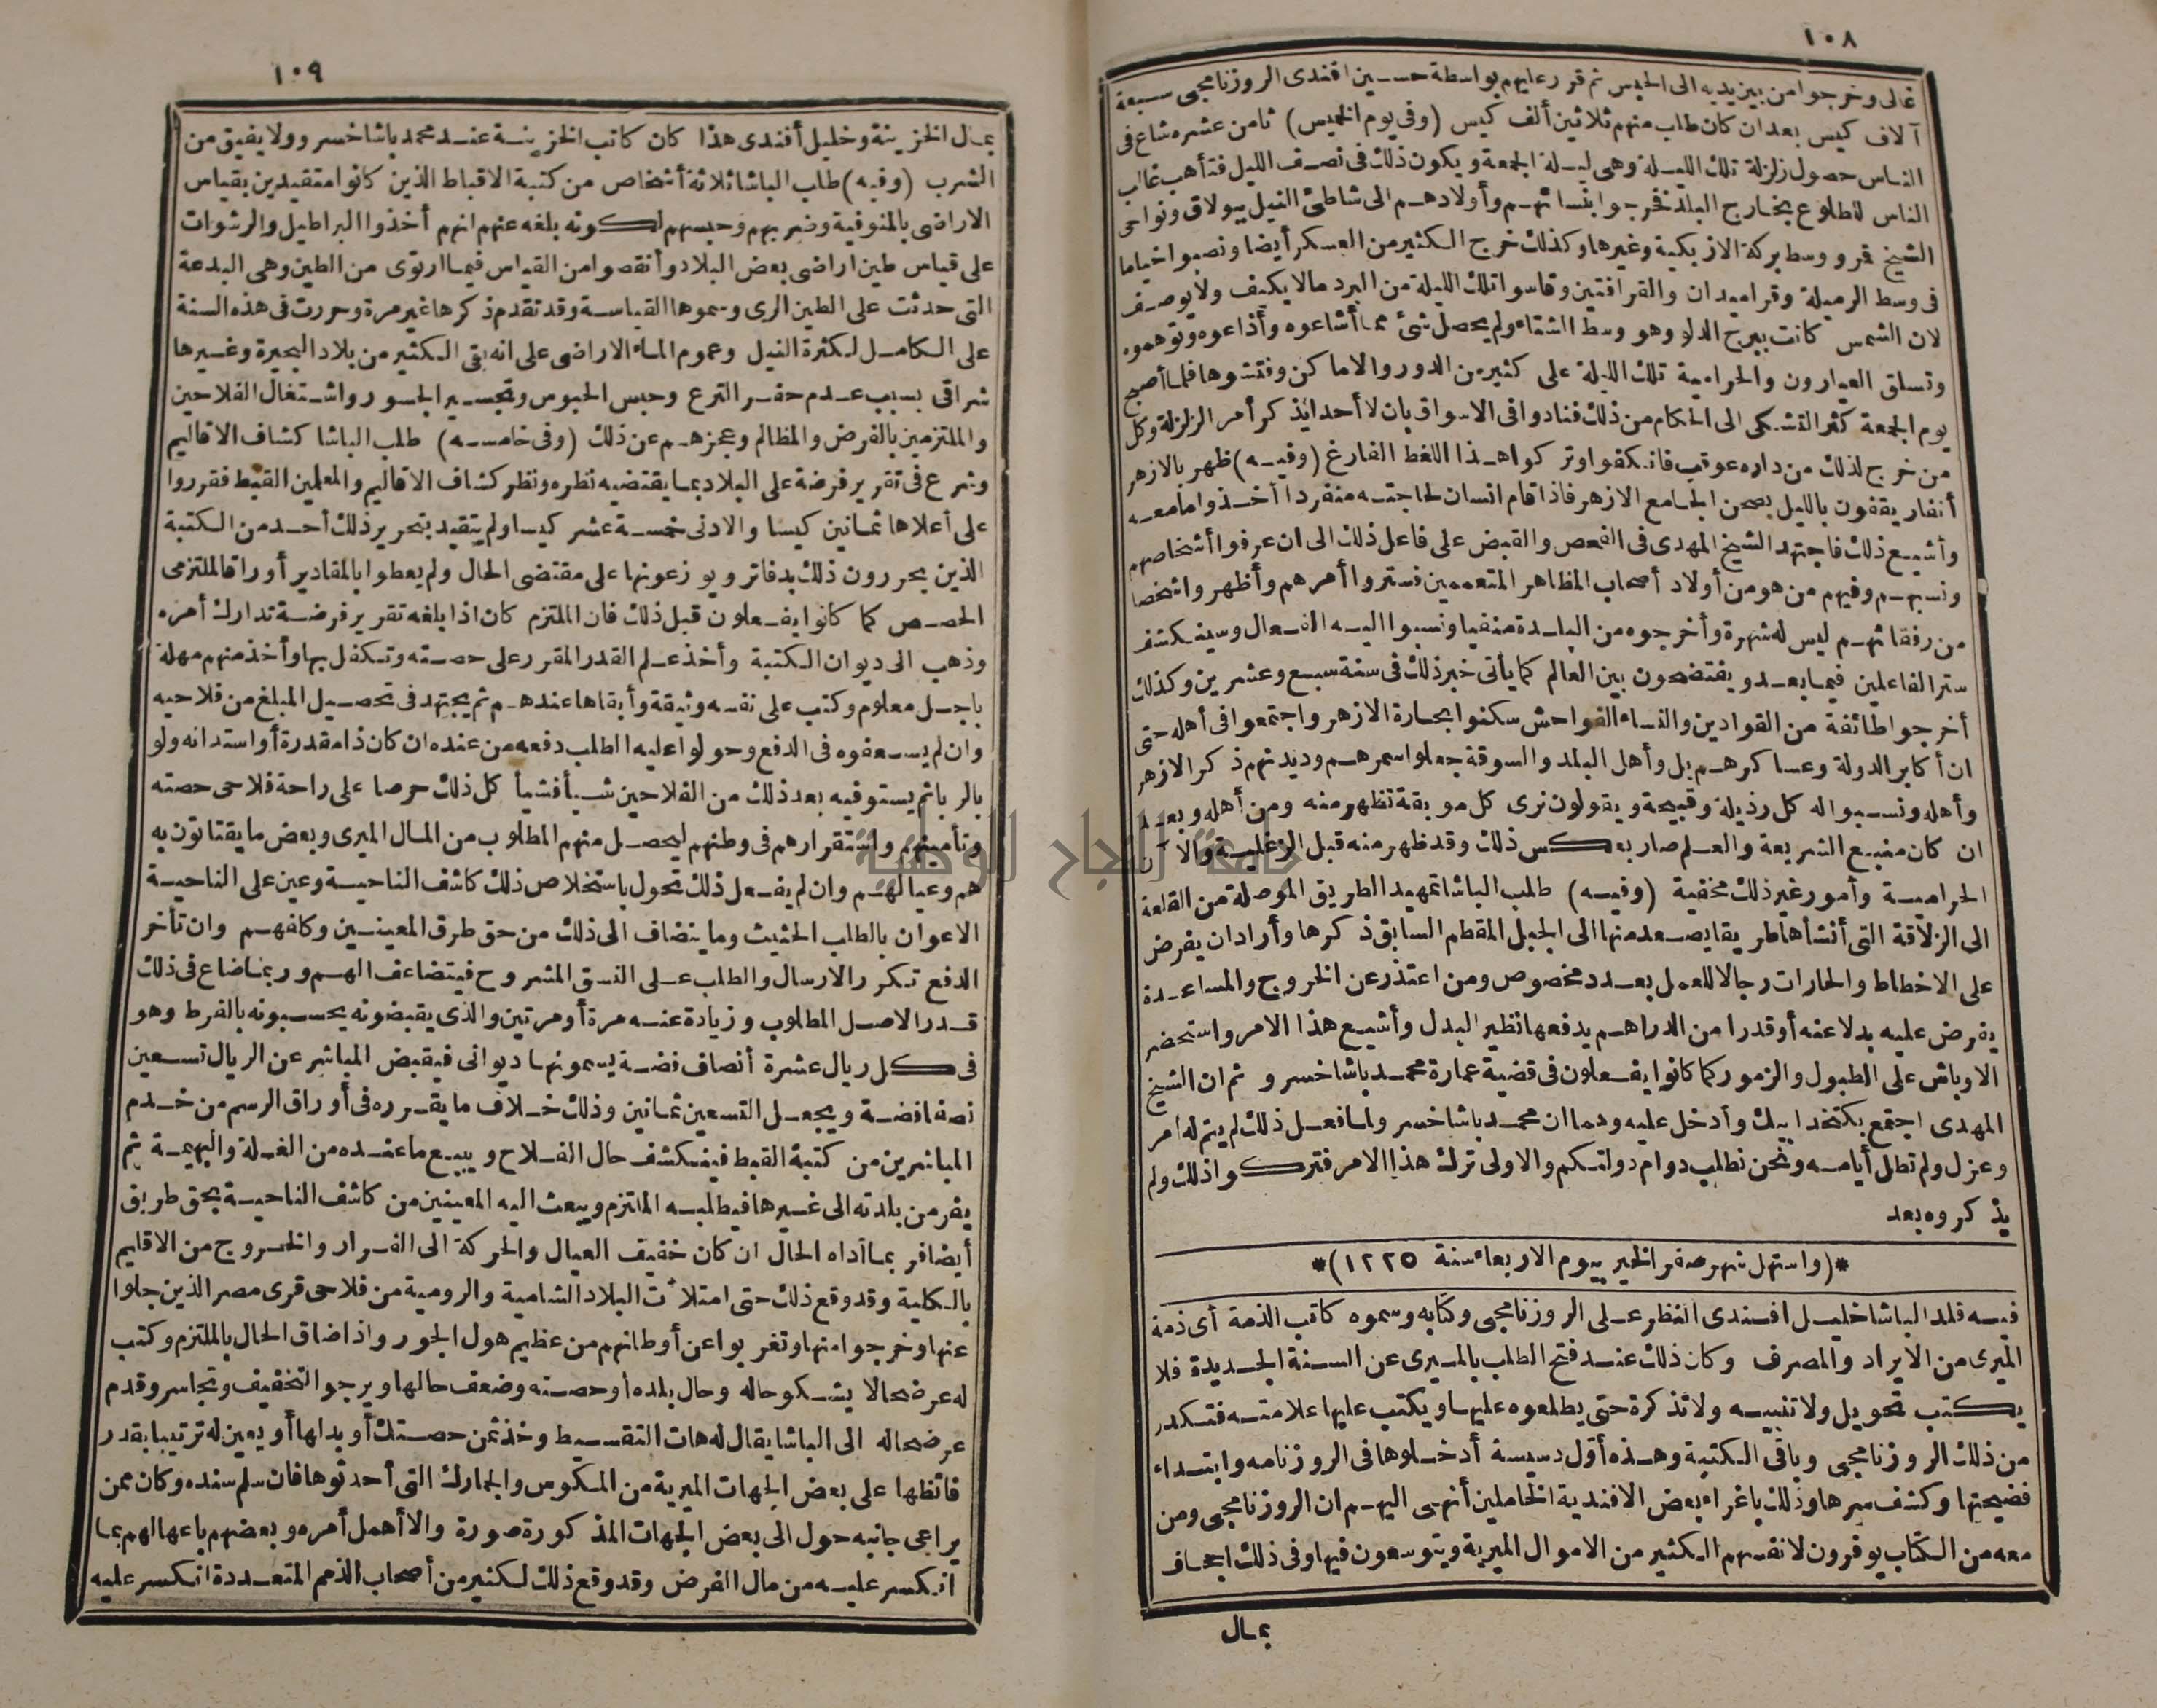 ١٠٨
غالى وخرجوا من بين يديه الى الحبس ثم قرر عليهم بواسطة حسين افندى الروزنامجى سبعة
آلاف كيس بعد ان كان طلب منهم ثلاثين ألف كيس (وفى يوم الخميس) ثامن عشره شاع فى
الناس حصول زلزلة تلك الليلة وهى ليلة الجمعة ويكون ذلك فى نصف الليل فتأهب غالب
الناس للطلوع بخارج البلد فخرجوا بنسائهم وأولادهم الى شاطئ النيل ببولاق ونواحى
الشيخ قمر ووسط بركة الازبكية وغيرها وكذلك خرج الكثير من العسكر أيضا ونصبوا خياما
فى وسط الرميلة وقراميدان والقرافتين وقاسوا تلك الليلة من البرد مالا يكيف ولا يوصف
لان الشمس كانت ببرج الدلو وهو وسط الشتاء ولم يحصل شئ مما أشاعوه وأذاعوه وتوهموه
وتسلق العيارون والحرامية تلك الليلة على كثير من الدور والاماكن وفتشوها فلما أصبح
يوم الجمعة كثر التشكى الى الحكام من ذلك فنادوا فى الاسواق بان لا أحد يذكر أمر الزلزلة وكل
من خرج لذلك من داره عوقب فانكفوا وتركوا هذا اللغط الفارغ (وفيه) ظهر بالازهر
أنفار يقفون بالليل بصحن الجامع الازهر فاذا قام انسان لحاجته منفردا أخذوا ما معه
وأشيع ذلك فاجتهد الشيخ المهدى فى الفحص والقبض على فاعل ذلك الى ان عرفوا أشخاصهم
ونسبهم وفيهم من هو من أولاد أصحاب المظاهر المتعممين فستروا أمرهم وأظهروا شخصا
من رفقائهم ليس له شهرة وأخرجوه من البلدة منفيا ونسبوا اليه الفعال وسينكشف
ستر الفاعلين فيما بعد ويفتضحون بين العالم كما يأتى خبر ذلك فى سنة سبع وعشرين وكذلك
أخرجوا طائفة من القوادين والنساء الفواحش سكنوا بحارة الازهر واجتمعوا فى أهله حتى
ان أكابر الدولة وعساكرهم بل وأهل البلد والسوقة جعلوا سمرهم وديدنهم ذكر الازهر
وأهله ونسبوا له كل رذيلة وقبيحة ويقولون نرى كل موبقة تظهر منه ومن أهله وبعد
ان كان منبع الشريعة والعلم صار بعكس ذلك وقد ظهر منه قبل الزغلية والآن
الحرامية وأمور غير ذلك مخفية (وفيه) طلب الباشا تمهيد الطريق الموصلة من القلعة
الى الزلاقة التى أنشأها طريقا يصعد منها الى الجبل المقطم السابق ذكرها وأراد ان يفرض
على الاخطاط والحارات رجالا للعمل بعدد مخصوص ومن اعتذر عن الخروج والمساعدة
يفرض عليه بدلا عنه أو قدرا من الدراهم يدفعها نظير البدل وأشيع هذا الامر واستحضر
الاوباش على الطبول والزمور كما كانوا يفعلون فى قضية عمارة محمد باشا خسرو ثم ان الشيخ
المهدى اجتمع بكتخدا بيك وأدخل عليه وهما ان محمد باشا خسرو لما فعل ذلك لم يتم له أمر
وعزل ولم تطل أيامه ونحن نطلب دوام دولتكم والاولى ترك هذا الامر فتركوا ذلك ولم
يذكروه بعد
*(واستهل شهر صفر الخير بيوم الاربعاء سنة ١٢٢٥)*
فيه قلد الباشا خليل افندى النظر على الروزنامجى وكتابه وسموه كاتب الذمة أى ذمة
الميرى من الايراد والمصرف وكان ذلك عند فتح الطلب بالميرى عن السنة الجديدة فلا
يكتب تحويل ولا تنبيه ولا تذكرة حتى يطلعوه عليها ويكتب عليها علامته فتكدر
من ذلك الروزنامجى وباقى الكتبة وهذه أول دسيسة أدخلوها فى الروزنامه وابتداء
فضيحتها وكشف سرها وذلك باغراء بعض الافندية الخاملين أنهى اليهم ان الروزنامجى ومن
معه من الكتاب يوفرون لانفسهم الكثير من الاموال الميرية ويتوسعون فيها وفى ذلك اجحاف
بمال
١٠٩
بمال الخزينة وخليل أفندى هذا كان كاتب الخزينة عند محمد باشا خسرو ولا يفيق من
الشرب (وفيه) طلب الباشا ثلاثة أشخاص من كتبة الاقباط الذين كانوا متقيدين بقياس
الاراضى بالمنوفية وضربهم وحبسهم لكونه بلغه عنهم انهم أخذوا البراطيل والرشوات
على قياس طين اراضى بعض البلاد وأنقصوا من القياس فيما ارتوى من الطين وهى البدعة
التى حدثت على الطين الرى وسموها القياسة وقد تقدم ذكرها غير مرة وحررت فى هذه السنة
على الكامل لكثرة النيل وعموم الماء الاراضى على انه بقى الكثير من بلاد البحيرة وغيرها
شراقى بسبب عدم حفر الترع وحبس الحبوس وتجسير الجسور واشتغال الفلاحين
والملتزمين بالفرض والمظالم وعجزهم عن ذلك (وفى خامسه) طلب الباشا كشاف الاقاليم
وشرع فى تقرير فرضة على البلاد بما يقتضيه نظره ونظر كشاف الاقاليم والمعلمين القبط فقرروا
على أعلاها ثمانين كيسا والادنى خمسة عشر كيسا ولم يتقيد بتحرير ذلك أحد من الكتبة
الذين يحررون ذلك بدفاتر ويوزعونها على مقتضى الحال ولم يعطوا بالمقادير أوراقا لملتزمى
الحصص كما كانوا يفعلون قبل ذلك فان الملتزم كان اذا بلغه تقرير فرضة تدارك أمره
وذهب الى ديوان الكتبة وأخذ علم القدر المقرر على حصته وتكفل بها وأخذ منهم مهلة
باجل معلوم وكتب على نفسه وثيقة وأبقاها عندهم ثم يجتهد فى تحصيل المبلغ من فلاحيه
وان لم يسعفوه فى الدفع وحولوا عليه الطلب دفعه من عنده ان كان ذا مقدرة أو استدانه ولو
بالربا ثم يستوفيه بعد ذلك من الفلاحين شيأ فشيأ كل ذلك حرصا على راحة فلاحى حصته
وتأمينهم واستقرارهم فى وطنهم ليحصل منهم المطلوب من المال الميرى وبعض ما يقتاتون به
هم وعيالهم وان لم يفعل ذلك تحول باستخلاص ذلك كاشف الناحية وعين على الناحية
الاعوان بالطلب الحثيث وما ينضاف الى ذلك من حق طرق المعينين وكلفهم وان تأخر
الدفع تكرر الارسال والطلب على النسق المشروح فيتضاعف الهم وربما ضاع فى ذلك
قدر الاصل المطلوب وزيادة عنه مرة أو مرتين والذى يقبضونه يحسبونه بالفرط وهو
فى كل ريال عشرة أنصاف فضة يسمونها ديوانى فيقبض المباشر عن الريال تسعين
نصفا فضة ويجعل التسعين ثمانين وذلك خلاف ما يقرره فى أوراق الرسم من خدم
المباشرين من كتبة القبط فينكشف حال الفلاح ويبيع ما عنده من الغلة والبهيمة ثم
يفر من بلدته الى غيرها فيطلبه الملتزم ويبعث اليه المعينين من كاشف الناحية بحق طريق
أيضا فربما أداه الحال ان كان خفيف العيال والحركة الى الفرار والخروج من الاقليم
بالكلية وقد وقع ذلك حتى امتلأت البلاد الشامية والرومية من فلاحى قرى مصر الذين جلوا
عنها وخرجوا منها وتغربوا عن أوطانهم من عظيم هول الجور واذا ضاق الحال بالملتزم وكتب
له عرضحالا يشكو حاله وحال بلده أو حصته وضعف حالها ويرجو التخفيف وتجاسر وقدم
عرضحاله الى الباشا يقال له هات التقسيط وخذ ثمن حصتك أو بدلها أو يعين له ترتيبا بقدر
فائظها على بعض الجهات الميرية من المكوس والجمارك التى أحدثوها فان سلم سنده وكان ممن
يراعى جانبه حول الى بعض الجهات المذكورة صورة والا أهمل أمره وبعضهم باعها لهم بما
انكسر عليه من مال الفرض وقد وقع ذلك لكثير من أصحاب الذمم المتعددة انكسر عليه
جامعة النجاح الوطنية